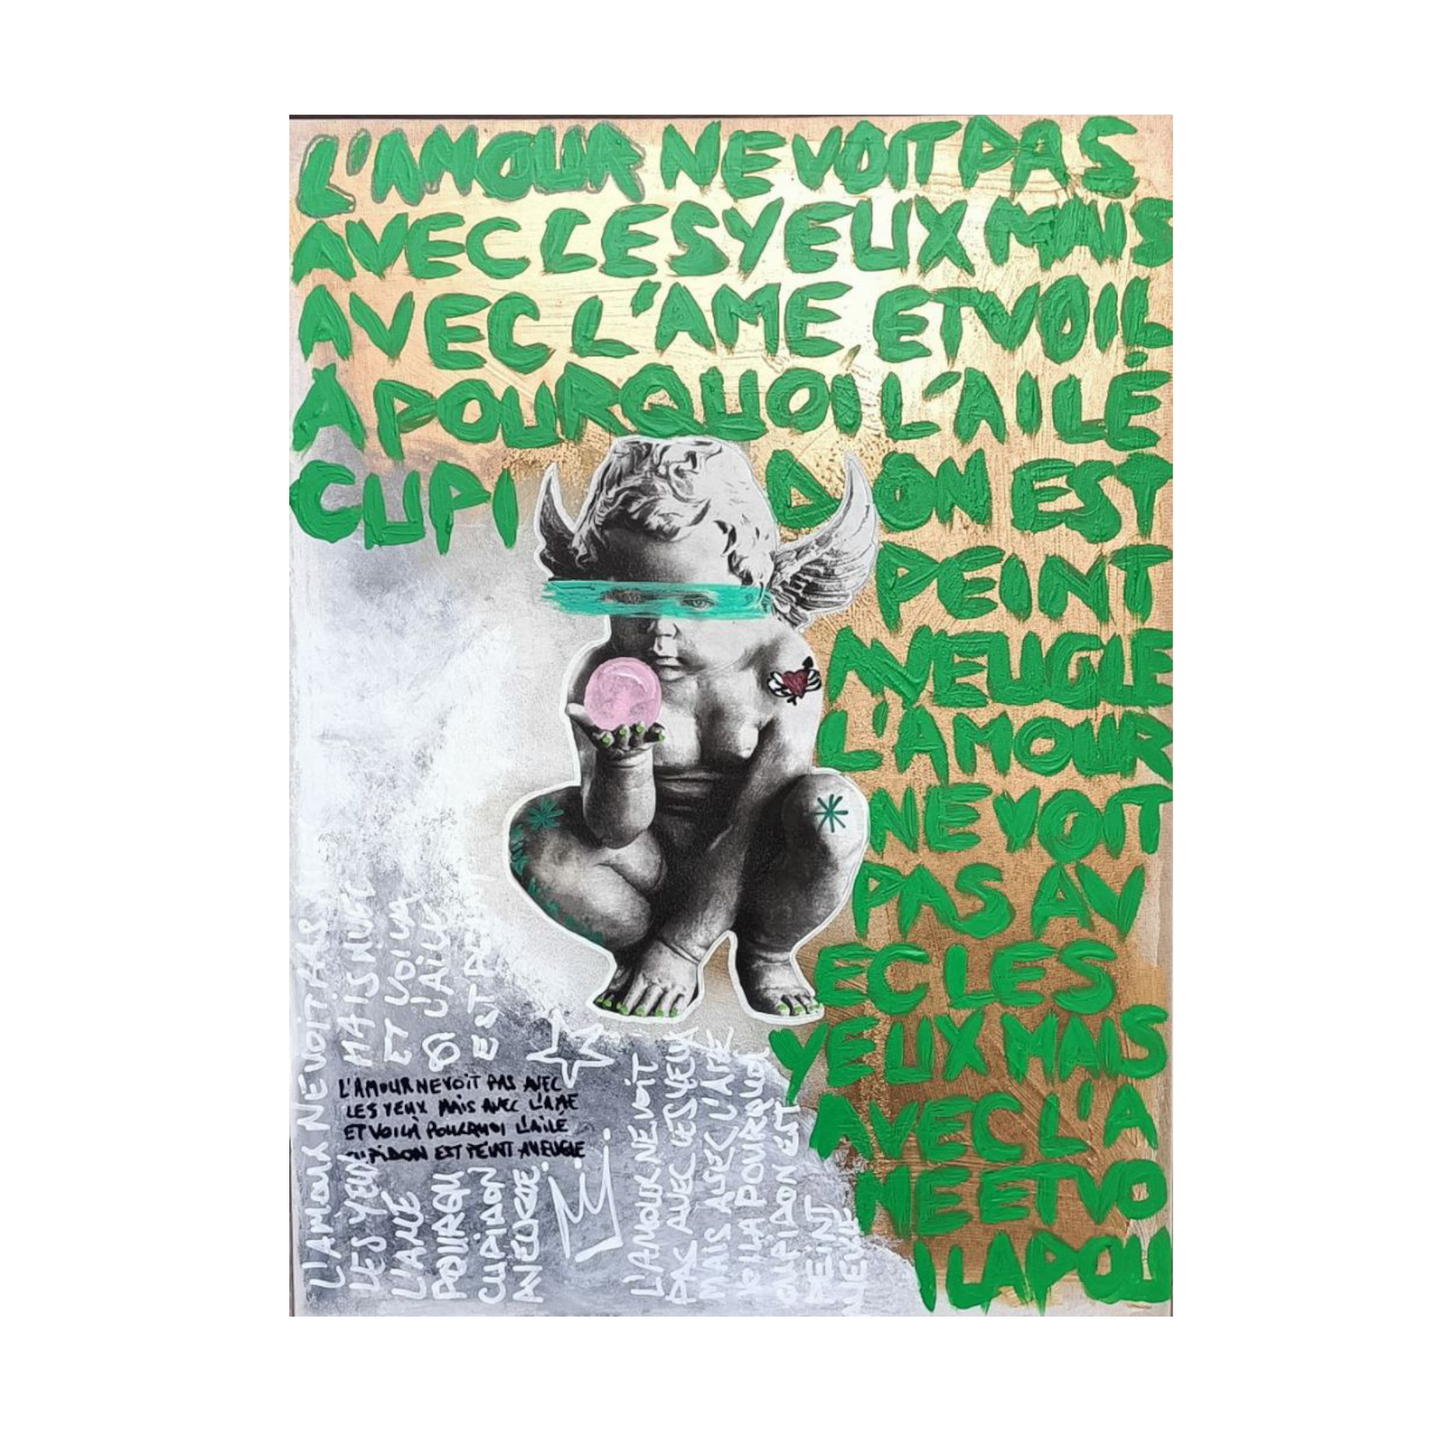 L'AMOUR NE VOIT PAS
AVEC LES YEUX MAIS
AVEC L'AME ET VOIL
À POURQUOI L'AILÉ
CUPIDON EST
PEINT
AVEUGLE
L'AMOUR
NE VOIT
PAS AV
EC LES
YEUX MAIS
AVEC L'A
ME ET VO
ILA POU
L'AMOUR NE VOIT PAS AVEC
LES YEUX MAIS AVEC L'AME
ET VOILÀ POURQUOI L'AILÉ
CUPIDON EST PEINT AVEUGLE
L'AMOUR NE VOIT PAS
LES YEUX MAIS
L'AME ET VOILA
POURQUOI L'AILE
CUPIDON EST PEINT
AVEUGLE
L'AMOUR NE VOIT
PAS AVEC LES YEUX
MAIS AVEC L'AME
VOILA POURQUOI
CUPIDON EST
PEINT